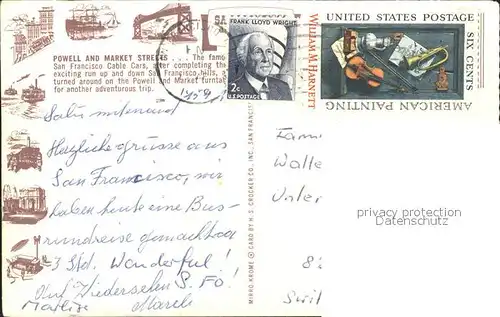 POWELL AND MARKET STREETS ... The famo
San Francisco Cable Cars, after completing th
exciting run up and down San Francisco hills, a
turned around on the Powell and Market turntab
for another adventurous trip.
FRANK LLOYD WRIGHT
2c
U.S. POSTAGE
UNITED STATES POSTAGE
SIX CENTS
WILLIAM M. HARNETT
AMERICAN PAINTING
Salü mitenand
Herzliche grüsse aus
San Francisco, wir
haben heute eine Bus-
rundreise gemacht von
3 Std. Wonderful!
Auf Wiedersehen S. Fo!
MIRRO-KROME ® CARD BY H. S. CROCKER CO., INC., SAN FRANCI
Fami
Walte
Unter
8
Swit
privacy protection
Datenschutz